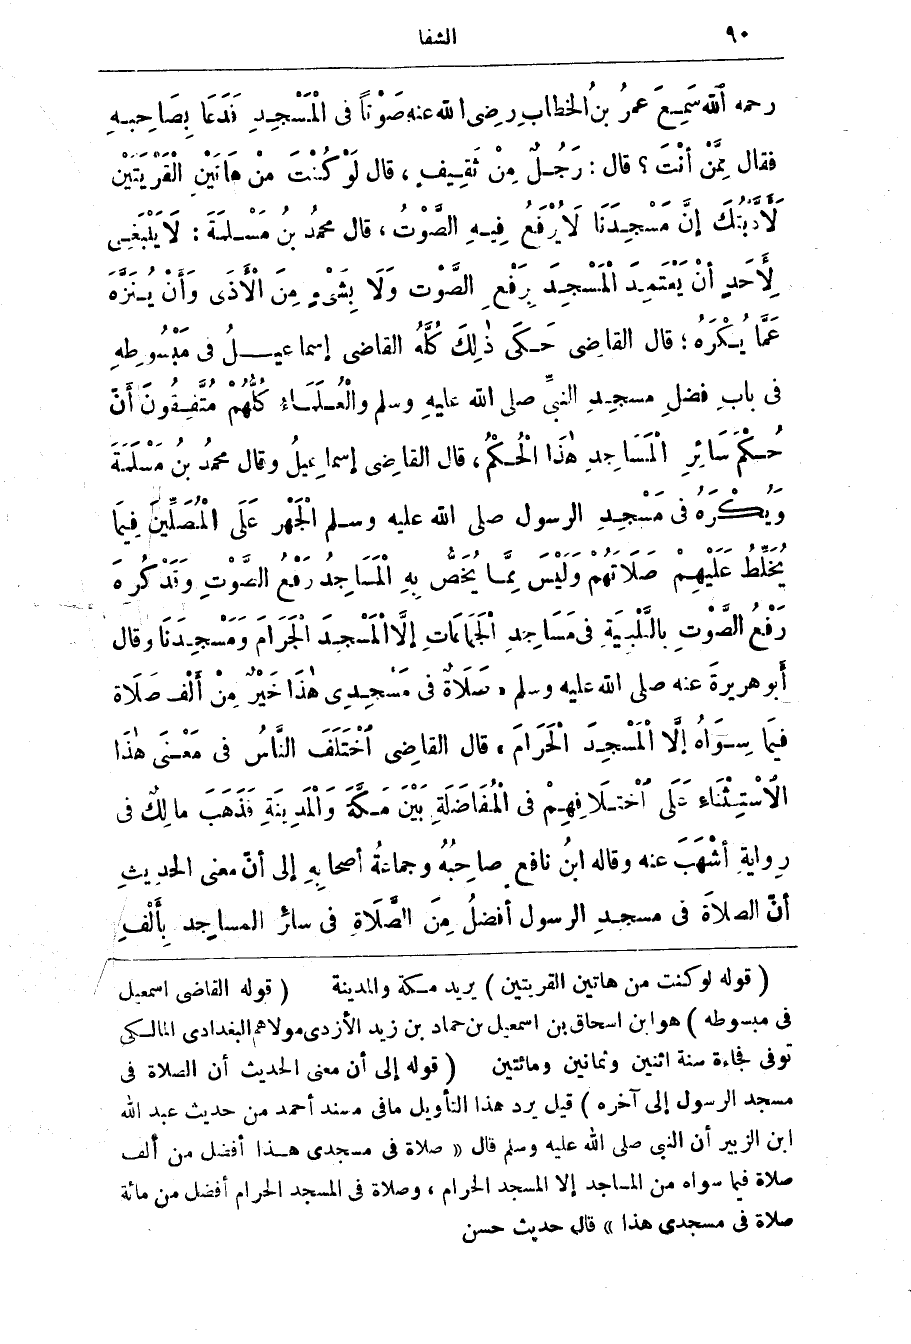 ٩٠
الشفا
رحمه اللهُ سَمِعَ عمرُ بنُ الخطاب رضى الله عنه صَوْتاً فى الْمَسْجِدِ فَدَعَا بِصَاحِبِهِ
فقال مِمَّنْ أنْتَ ؟ قال : رَجُلٌ مِنْ ثَقِيفٍ ، قال لَوْ كُنْتَ مِنْ هَاتَيْنِ الْقَرْيَتَيْنِ
لَأَدَّبْتُكَ إنَّ مَسْجِدَنَا لَا يُرْفَعُ فِيهِ الصَّوْتُ ، قال محمدُ بنُ مَسْلَمَةَ : لَا يَنْبَغِى
لِأَحَدٍ أنْ يَعْتَمِدَ الْمَسْجِدَ بِرَفْعِ الصَّوْتِ وَلَا بِشَىْءٍ مِنَ الْأَذَى وَأَنْ يُنَزَّهَ
عَمَّا يُكْرَهُ ؛ قال القاضى حَكَى ذٰلِكَ كُلَّهُ القاضى إسماعيلُ فى مَبْسُوطِهِ
فى بابِ فضلِ مسجِدِ النبىِّ صلى الله عليهِ وسلم والْعُلَمَاءُ كُلُّهُمْ مُتَّفِقُونَ أَنَّ
حُكْمَ سَائِرِ الْمَسَاجِدِ هٰذَا الْحُكْمُ ، قال القاضى إسماعيلُ وقال محمدُ بنُ مَسْلَمَةَ
وَيُكْرَهُ فى مَسْجِدِ الرسول صلى الله عليه وسلم الْجَهْرُ عَلَى الْمُصَلِّينَ فِيمَا
يُخَلِّطُ عَلَيْهِمْ صَلَاتَهُمْ وَلَيْسَ مِمَّا يُخَصُّ بِهِ الْمَسَاجِدُ رَفْعُ الصَّوْتِ وَقَدْ كُرِهَ
رَفْعُ الصَّوْتِ بِالتَّلْبِيَةِ فى مَسَاجِدِ الْجَمَاعَاتِ إلَّا الْمَسْجِدَ الْحَرَامَ وَمَسْجِدَنَا وقال
أبو هريرةَ عنه صلى الله عليه وسلم « صَلَاةٌ فى مَسْجِدِى هٰذَا خَيْرٌ مِنْ أَلْفِ صَلَاةٍ
فِيمَا سِوَاهُ إلَّا الْمَسْجِدَ الْحَرَامَ » قال القاضى اخْتَلَفَ النَّاسُ فى مَعْنَى هٰذَا
الاسْتِثْنَاءِ عَلَى اخْتِلَافِهِمْ فى الْمُفَاضَلَةِ بَيْنَ مَكَّةَ وَالْمَدِينَةِ فَذَهَبَ مالِكٌ فى
روايةِ أَشْهَبَ عنه وقاله ابنُ نافعٍ صاحِبُهُ وجماعةُ أصحابِهِ إلى أنّ معنى الحديثِ
أنّ الصلاةَ فى مسجدِ الرسول أفضلُ مِنَ الصَّلَاةِ فى سائرِ المساجِدِ بِأَلْفِ
( قوله لو كنت من هاتين القريتين ) يريد مكة والمدينة ( قوله القاضى اسمعيل
فى مبسوطه ) هو ابن اسحاق بن اسمعيل بن حماد بن زيد الأزدى مولاهم البغدادى المالكى
توفى فجاءة سنة اثنين وثمانين ومائتين ( قوله إلى أن معنى الحديث أن الصلاة فى
مسجد الرسول إلى آخره ) قيل يرد هذا التأويل مافى مسند أحمد من حديث عبد الله
ابن الزبير أن النبى صلى الله عليه وسلم قال « صلاة فى مسجدى هذا أفضل من ألف
صلاة فيما سواه من المساجد إلا المسجد الحرام ، وصلاة فى المسجد الحرام أفضل من مائة
صلاة فى مسجدى هذا » قال حديث حسن